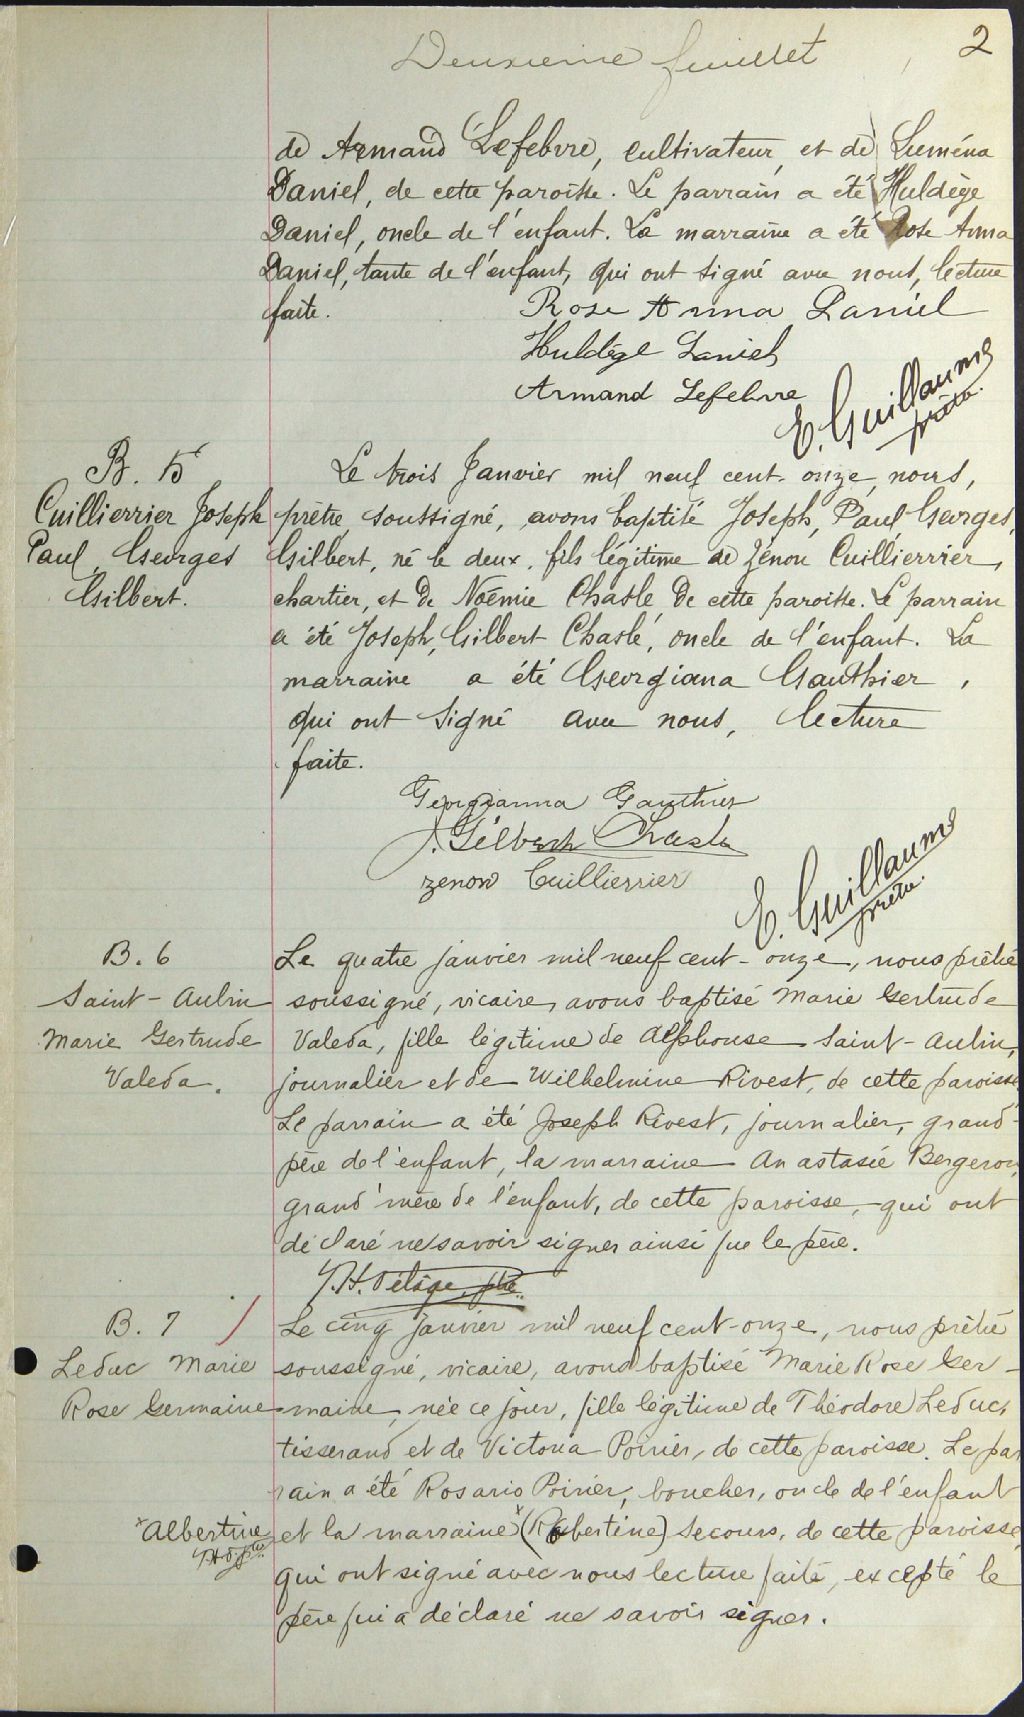 Deuxieme feuillet
2
de Armand Lefebvre, cultivateur, et de Luména
Daniel, de cette paroisse. Le parrain a été Huldège
Daniel, oncle de l'enfant. La marraine a été Rose Anna
Daniel, tante de l'enfant, qui ont signé avec nous, lecture
faite.
Rose Anna Daniel
Huldège Daniel
Armand Lefebvre
E. Guillaume
prêtre
B. 5
Cuillierrier Joseph
Paul, Georges
Gilbert.
Le trois Janvier mil neuf cent onze, nous,
prêtre soussigné, avons baptisé Joseph, Paul Georges,
Gilbert, né le deux, fils légitime de Zénon Cuillierrier,
chartier, et de Noémie Chasle de cette paroisse. Le parrain
a été Joseph, Gilbert Chaslé, oncle de l'enfant. La
marraine a été Georgiana Gauthier,
qui ont signé avec nous, lecture
faite.
Georgianna Gauthier
J. Gilbert Chasle
Zenon Cuillierrier
E. Guillaume
prêtre
B. 6
Saint-Aubin
Marie Gertrude
Valeda.
Le quatre janvier mil neuf cent-onze, nous prêtre
soussigné, vicaire, avons baptisé Marie Gertrude
Valeda, fille légitime de Alphonse Saint-Aubin,
journalier et de Wilhelmine Rivest, de cette paroisse.
Le parrain a été Joseph Rivest, journalier, grand-
père de l'enfant, la marraine Anastasie Bergeron,
grand'mère de l'enfant, de cette paroisse, qui ont
déclaré ne savoir signer ainsi que le père.
B. 7
Leduc Marie
Rose Germaine
Le cinq janvier mil neuf cent-onze, nous prêtre
soussigné, vicaire, avons baptisé Marie Rose Ger-
maine, née ce jour, fille légitime de Théodore Leduc,
tisserand et de Victoria Poirier, de cette paroisse. Le par
rain a été Rosario Poirier, boucher, oncle de l'enfant
x Albertine
et la marraine x (Robertine) Secours, de cette paroisse,
qui ont signé avec nous lecture faite, excepté le
père qui a déclaré ne savoir signer.